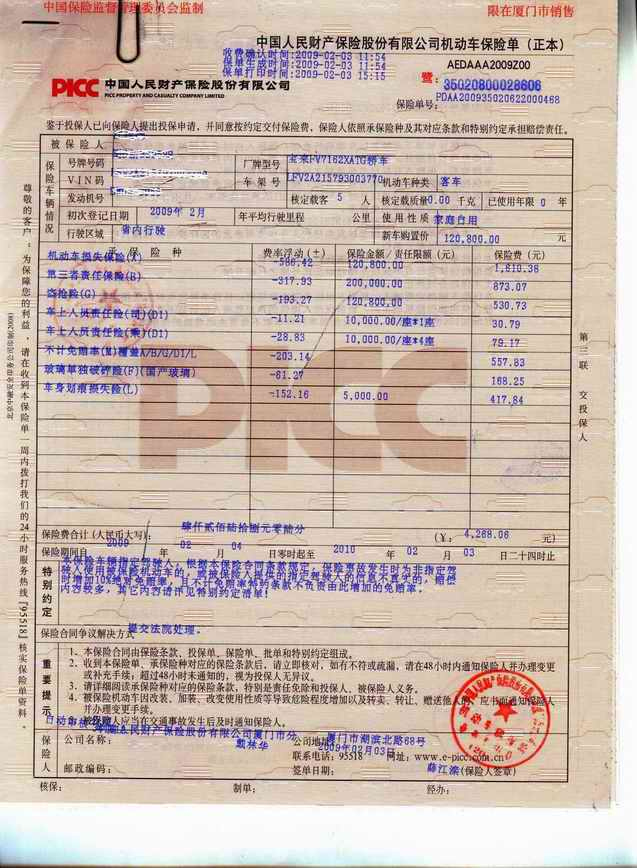 中国保险监督管理委员会监制
限在厦门市销售
中国人民财产保险股份有限公司机动车保险单(正本)
收费确认时间:2009-02-03 11:54
保单生成时间:2009-02-03 11:54
保单打印时间:2009-02-03 15:15
AEDAAA2009Z00
PICC 中国人民财产保险股份有限公司
PICC PROPERTY AND CASUALTY COMPANY LIMITED
35020800028606
保险单号: PDAA200935020622000468
鉴于投保人已向保险人提出投保申请,并同意按约定交付保险费,保险人依照承保险种及其对应条款和特别约定承担赔偿责任。
被保险人
保险车辆情况
号牌号码 厂牌型号 宝来FV7162XATG轿车
VIN码 车架号 LFV2A21579300377 机动车种类 客车
发动机号 核定载客 5 人 核定载质量 0.00 千克 已使用年限 0 年
初次登记日期 2009年 2月 年平均行驶里程 公里 使用性质 家庭自用
行驶区域 省内行驶 新车购置价 120,800.00 元
承保险种 费率浮动(±) 保险金额/责任限额(元) 保险费(元)
机动车损失保险(A) -586.42 120,800.00 1,610.38
第三者责任保险(B) -317.93 200,000.00 873.07
盗抢险(G) -193.27 120,800.00 530.73
车上人员责任险(司)(D1) -11.21 10,000.00/座*1座 30.79
车上人员责任险(乘)(D1) -28.83 10,000.00/座*4座 79.17
不计免赔率(M)覆盖A/B/G/D1/L -203.14 557.83
玻璃单独破碎险(F)(国产玻璃) -61.27 168.25
车身划痕损失险(L) -152.16 5,000.00 417.84
保险费合计(人民币大写): 肆仟贰佰陆拾捌元零陆分 (¥: 4,268.06 元)
保险期间自 2009 年 02 月 04 日零时起至 2010 年 02 月 03 日二十四时止
特别约定
本保险车辆指定驾驶人,根据本保险合同条款规定,保险事故发生时为非指定驾
驶人使用被保险机动车的,或被保险人提供的指定驾驶人的信息不真实的,赔偿
时增加10%绝对免赔率,且不计免赔率特约条款不负责由此增加的免赔率。
内容较多,其它内容请详见特别约定清单!
保险合同争议解决方式 提交法院处理。
重要提示
1、本保险合同由保险条款、投保单、保险单、批单和特别约定组成。
2、收到本保险单、承保险种对应的保险条款后,请立即核对,如有不符或疏漏,请在48小时内通知保险人并办理变更
或补充手续;超过48小时未通知的,视为投保人无异议。
3、请详细阅读承保险种对应的保险条款,特别是责任免除和投保人、被保险人义务。
4、被保险机动车因改装、加装、改变使用性质等导致危险程度增加以及转卖、转让、赠送他人的,应书面通知保险人
并办理变更手续。
5、被保险人应当在交通事故发生后及时通知保险人。
保险人
公司名称: 中国人民财产保险股份有限公司厦门市分 公司地址: 厦门市湖滨北路68号
邮政编码: 联系电话: 95518 网址: www.e-picc.com.cn
签单日期: 2009年02月03日 (保险人签章)
核保: 制单: 经办:
尊敬的客户:为保障您的利益,请在收到本保险单一周内拨打我们的24小时服务热线『95518』核实保险单资料。
第三联 交投保人
PICC